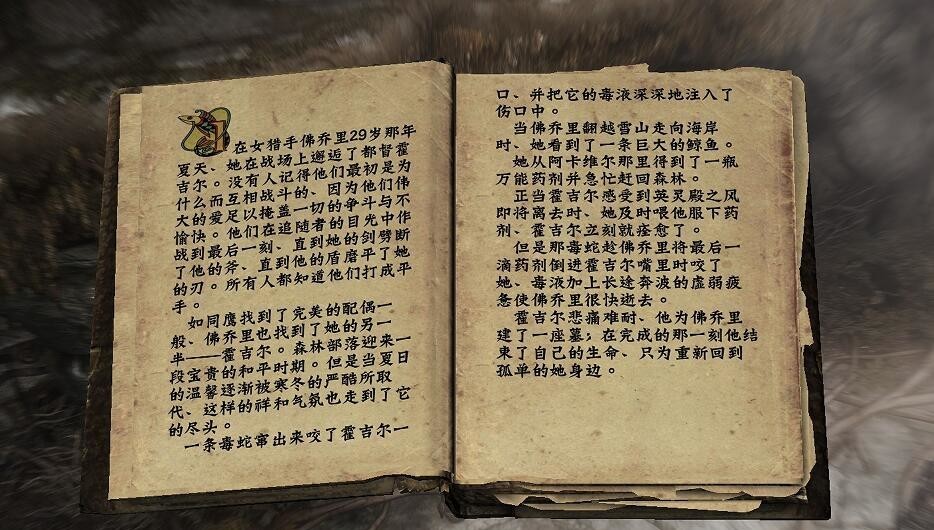 在女猎手佛乔里29岁那年
夏天、她在战场上邂逅了都督霍
吉尔。没有人记得他们最初是为
什么而互相战斗的、因为他们伟
大的爱足以掩盖一切的争斗与不
愉快。他们在追随者的目光中作
战到最后一刻、直到她的剑劈断
了他的斧、直到他的盾磨平了她
的刃。所有人都知道他们打成平
手。
如同鹰找到了完美的配偶一
般、佛乔里也找到了她的另一
半——霍吉尔。森林部落迎来一
段宝贵的和平时期。但是当夏日
的温馨逐渐被寒冬的严酷所取
代、这样的祥和气氛也走到了它
的尽头。
一条毒蛇窜出来咬了霍吉尔一
口、并把它的毒液深深地注入了
伤口中。
当佛乔里翻越雪山走向海岸
时、她看到了一条巨大的鲸鱼。
她从阿卡维尔那里得到了一瓶
万能药剂并急忙赶回森林。
正当霍吉尔感受到英灵殿之风
即将离去时、她及时喂他服下药
剂、霍吉尔立刻就痊愈了。
但是那毒蛇趁佛乔里将最后一
滴药剂倒进霍吉尔嘴里时咬了
她、毒液加上长途奔波的虚弱疲
惫使佛乔里很快逝去。
霍吉尔悲痛难耐、他为佛乔里
建了一座墓；在完成的那一刻他结
束了自己的生命、只为重新回到
孤单的她身边。